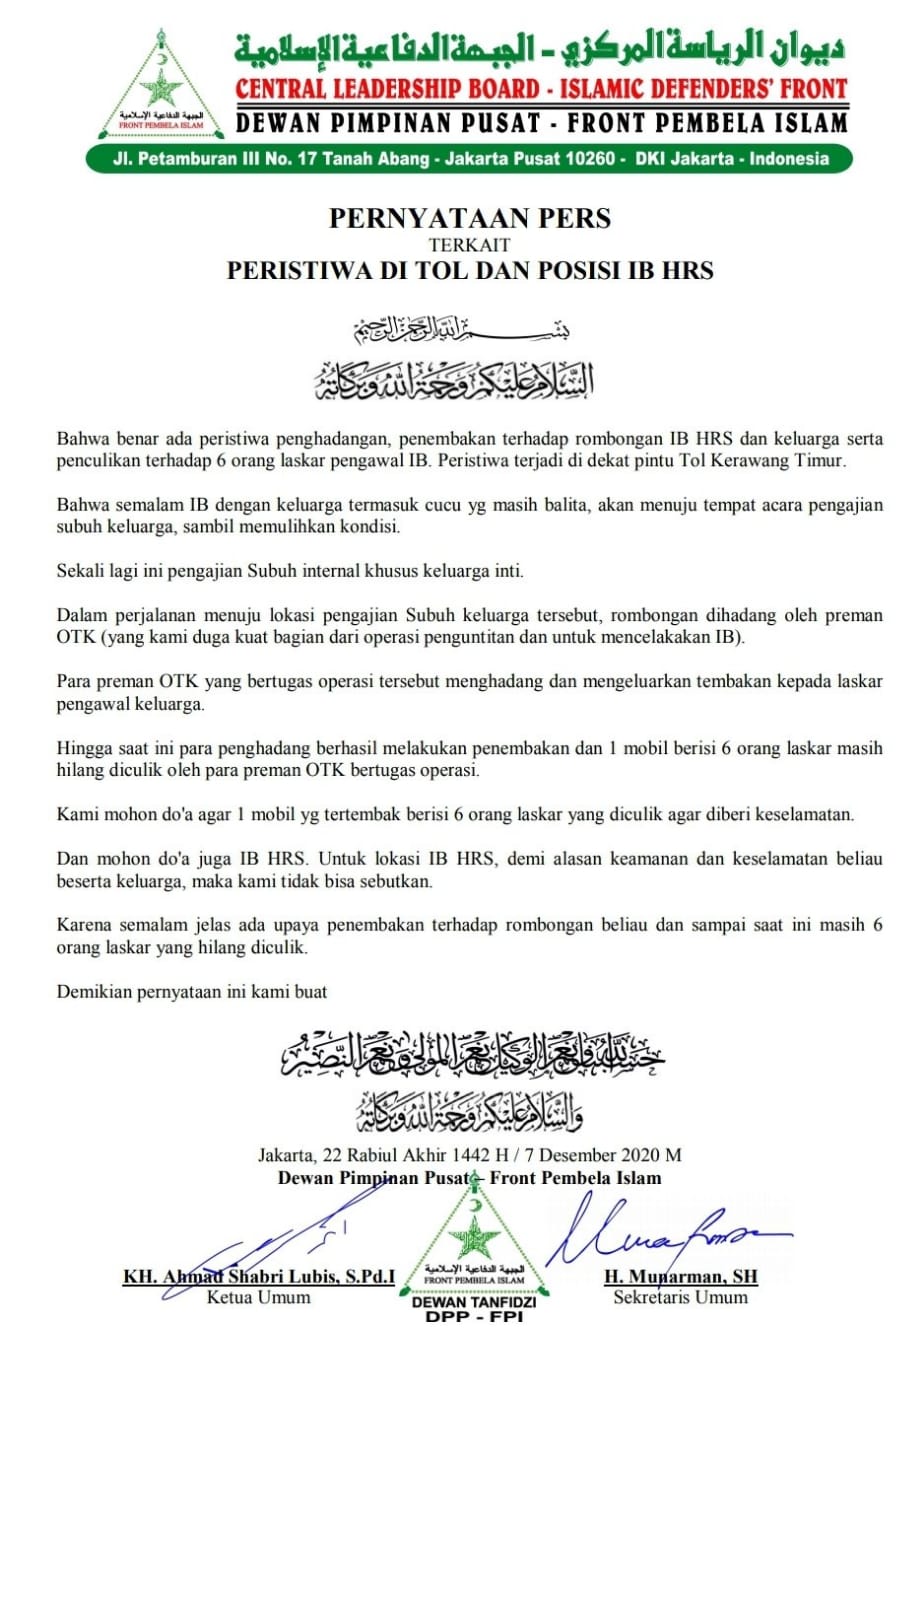 ديوان الرياسة المركزي - الجبهة الدفاعية الإسلامية
CENTRAL LEADERSHIP BOARD - ISLAMIC DEFENDERS' FRONT
DEWAN PIMPINAN PUSAT - FRONT PEMBELA ISLAM
الجبهة الدفاعية الإسلامية
FRONT PEMBELA ISLAM
Jl. Petamburan III No. 17 Tanah Abang - Jakarta Pusat 10260 - DKI Jakarta - Indonesia
PERNYATAAN PERS
TERKAIT
PERISTIWA DI TOL DAN POSISI IB HRS
بسم الله الرحمن الرحيم
السَّلَامُ عَلَيْكُمْ وَرَحْمَةُ اللهِ وَبَرَكَاتُهُ
Bahwa benar ada peristiwa penghadangan, penembakan terhadap rombongan IB HRS dan keluarga serta
penculikan terhadap 6 orang laskar pengawal IB. Peristiwa terjadi di dekat pintu Tol Kerawang Timur.
Bahwa semalam IB dengan keluarga termasuk cucu yg masih balita, akan menuju tempat acara pengajian
subuh keluarga, sambil memulihkan kondisi.
Sekali lagi ini pengajian Subuh internal khusus keluarga inti.
Dalam perjalanan menuju lokasi pengajian Subuh keluarga tersebut, rombongan dihadang oleh preman
OTK (yang kami duga kuat bagian dari operasi penguntitan dan untuk mencelakakan IB).
Para preman OTK yang bertugas operasi tersebut menghadang dan mengeluarkan tembakan kepada laskar
pengawal keluarga.
Hingga saat ini para penghadang berhasil melakukan penembakan dan 1 mobil berisi 6 orang laskar masih
hilang diculik oleh para preman OTK bertugas operasi.
Kami mohon do'a agar 1 mobil yg tertembak berisi 6 orang laskar yang diculik agar diberi keselamatan.
Dan mohon do'a juga IB HRS. Untuk lokasi IB HRS, demi alasan keamanan dan keselamatan beliau
beserta keluarga, maka kami tidak bisa sebutkan.
Karena semalam jelas ada upaya penembakan terhadap rombongan beliau dan sampai saat ini masih 6
orang laskar yang hilang diculik.
Demikian pernyataan ini kami buat
حسبنا الله ونعم الوكيل نعم المولى ونعم النصير
وَالسَّلَامُ عَلَيْكُمْ وَرَحْمَةُ اللهِ وَبَرَكَاتُهُ
Jakarta, 22 Rabiul Akhir 1442 H / 7 Desember 2020 M
Dewan Pimpinan Pusat – Front Pembela Islam
KH. Ahmad Shabri Lubis, S.Pd.I
Ketua Umum
الجبهة الدفاعية الإسلامية
FRONT PEMBELA ISLAM
DEWAN TANFIDZI
DPP - FPI
H. Munarman, SH
Sekretaris Umum